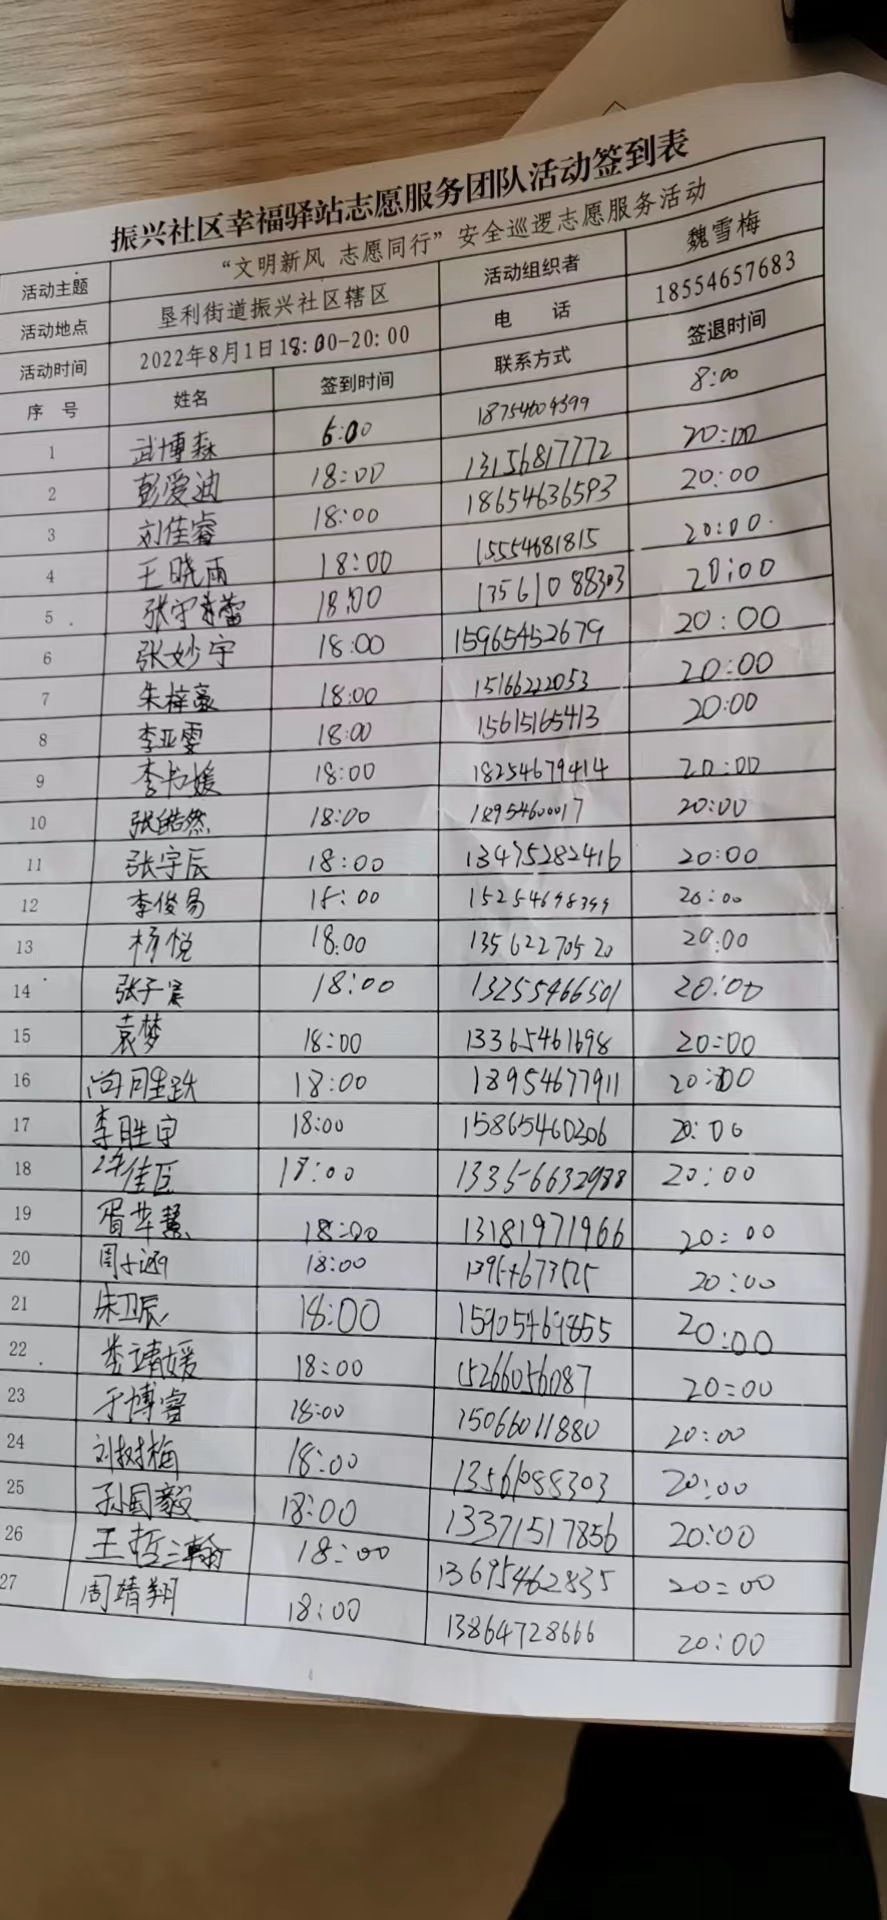 振兴社区幸福驿站志愿服务团队活动签到表
活动主题 “文明新风 志愿同行”安全巡逻志愿服务活动
活动地点 垦利街道振兴社区辖区 活动组织者 魏雪梅
活动时间 2022年8月1日18:00-20:00 电 话 18554657683
序 号 姓名 签到时间 联系方式 签退时间
1 武博森 6:00 18754604399 8:00
2 彭爱迪 18:00 13156817772 20:00
3 刘佳睿 18:00 18654636593 20:00
4 王晓雨 18:00 15554681815 20:00
5 18:00 13561088303 20:00
6 张妙宇 18:00 15965452679 20:00
7 朱梓豪 18:00 15166222053 20:00
8 李亚雯 18:00 15615165413 20:00
9 李书媛 18:00 18254679414 20:00
10 张皓然 18:00 18954600017 20:00
11 张宇辰 18:00 13475282416 20:00
12 李俊易 18:00 15254698399 20:00
13 杨悦 18.00 13562270520 20:00
14 18:00 13255466501 20:00
15 袁梦 18:00 13365461698 20:00
16 18:00 18954677911 20:00
17 李胜宇 18:00 15865460306 20:00
18 18:00 13356632988 20:00
19 18:00 13181971966 20:00
20 周子涵 18:00 13954673525 20:00
21 朱卫辰 18:00 15905469855 20:00
22 娄靖媛 18:00 15266056087 20:00
23 于博睿 18:00 15066011880 20:00
24 刘树梅 18:00 13561088303 20:00
25 孙国毅 18:00 13371517856 20:00
26 王哲瀚 18:00 13695462835 20:00
27 周靖翔 18:00 13864728666 20:00